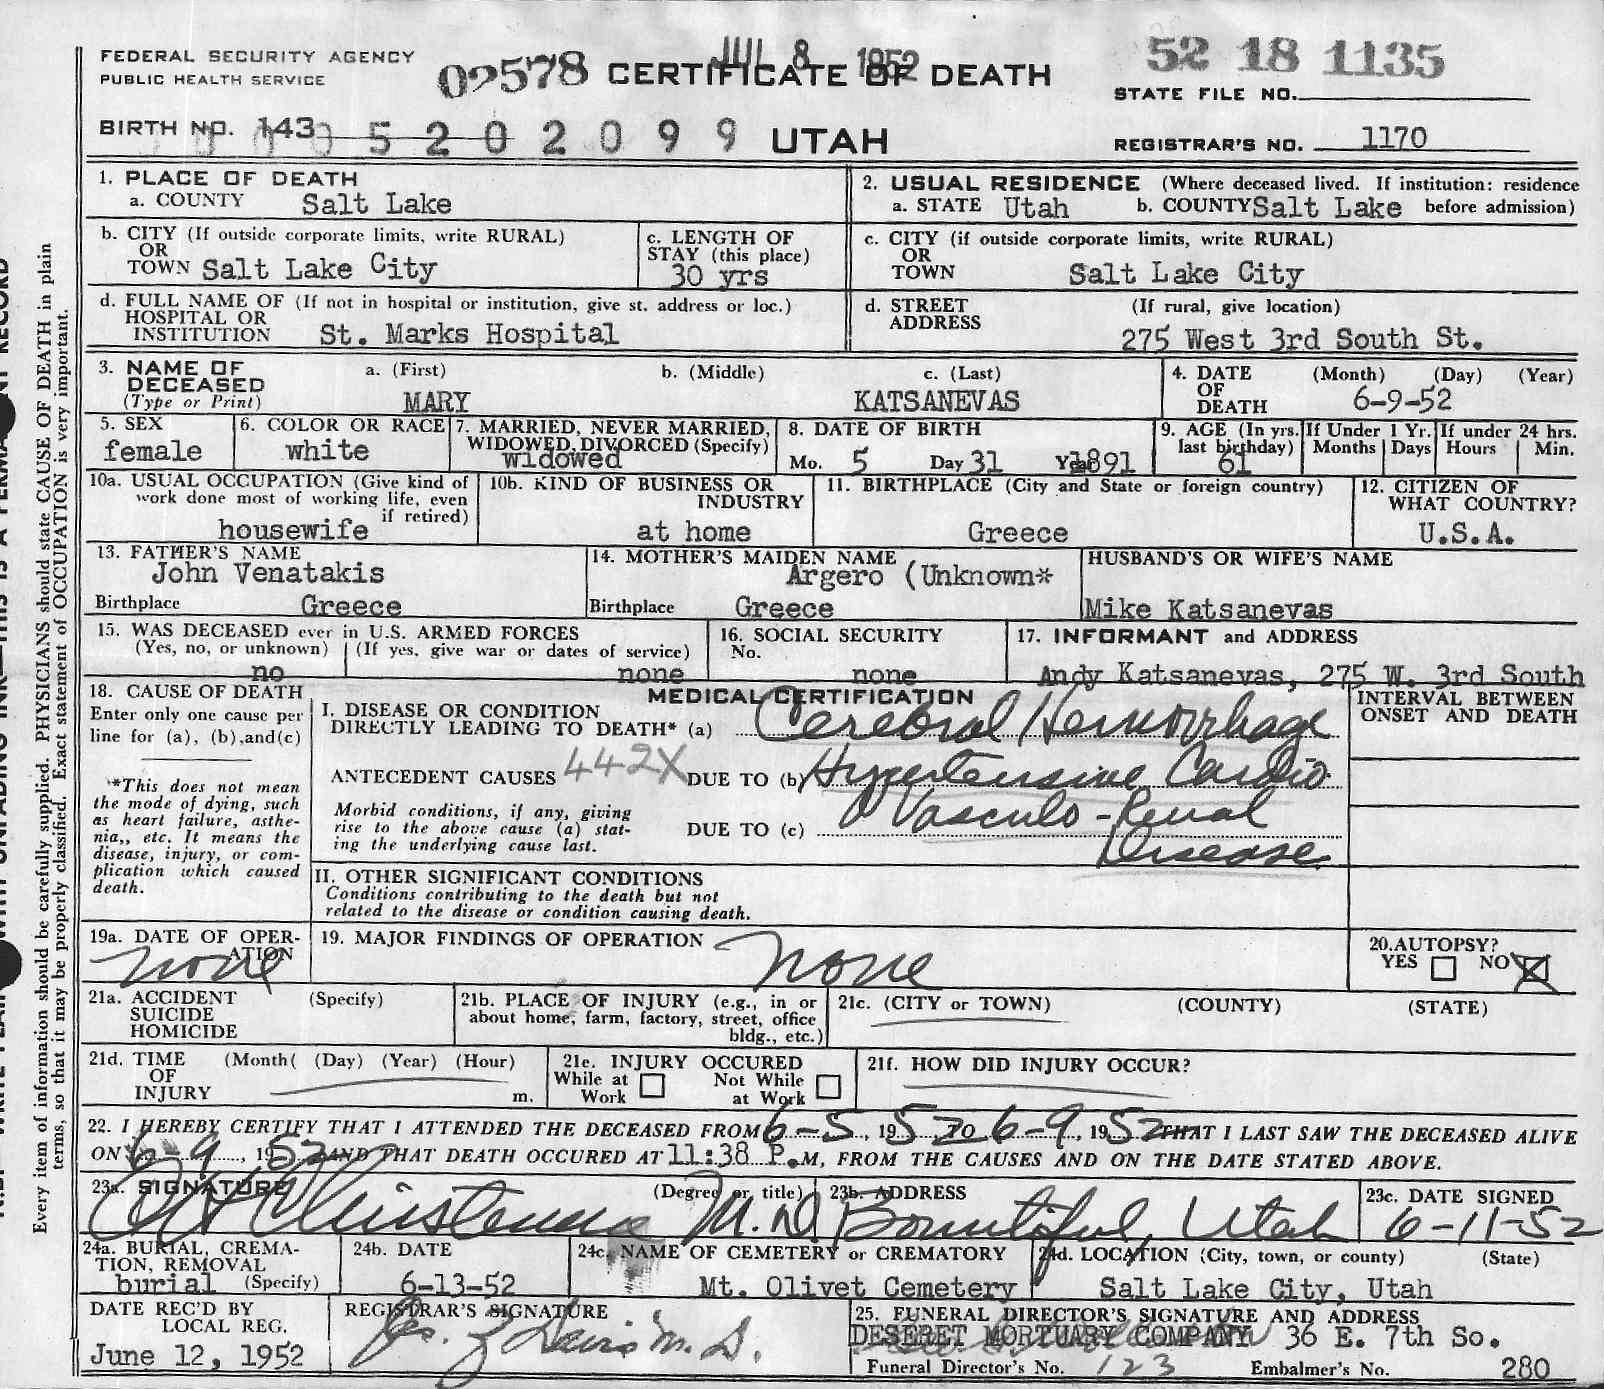 FEDERAL SECURITY AGENCY
PUBLIC HEALTH SERVICE
02578
JUL 8 1952
CERTIFICATE OF DEATH
52 18 1135
STATE FILE NO.
BIRTH NO. 143
5 2 0 2 0 9 9
UTAH
REGISTRAR'S NO. 1170
1. PLACE OF DEATH
a. COUNTY Salt Lake
2. USUAL RESIDENCE (Where deceased lived. If institution: residence
a. STATE Utah b. COUNTY Salt Lake before admission)
b. CITY (If outside corporate limits, write RURAL)
OR
TOWN Salt Lake City
c. LENGTH OF
STAY (this place)
30 yrs
c. CITY (if outside corporate limits, write RURAL)
OR
TOWN Salt Lake City
d. FULL NAME OF (If not in hospital or institution, give st. address or loc.)
HOSPITAL OR
INSTITUTION St. Marks Hospital
d. STREET (If rural, give location)
ADDRESS
275 West 3rd South St.
3. NAME OF a. (First) b. (Middle) c. (Last)
DECEASED
(Type or Print) MARY KATSANEVAS
4. DATE (Month) (Day) (Year)
OF
DEATH 6-9-52
5. SEX
female
6. COLOR OR RACE
white
7. MARRIED, NEVER MARRIED,
WIDOWED, DIVORCED (Specify)
widowed
8. DATE OF BIRTH
Mo. 5 Day 31 Year 1891
9. AGE (In yrs.
last birthday)
61
If Under 1 Yr.
Months Days
If under 24 hrs.
Hours Min.
10a. USUAL OCCUPATION (Give kind of
work done most of working life, even
if retired)
housewife
10b. KIND OF BUSINESS OR
INDUSTRY
at home
11. BIRTHPLACE (City and State or foreign country)
Greece
12. CITIZEN OF
WHAT COUNTRY?
U.S.A.
13. FATHER'S NAME
John Venatakis
Birthplace Greece
14. MOTHER'S MAIDEN NAME
Argero (Unknown*
Birthplace Greece
HUSBAND'S OR WIFE'S NAME
Mike Katsanevas
15. WAS DECEASED ever in U.S. ARMED FORCES
(Yes, no, or unknown) (If yes, give war or dates of service)
no none
16. SOCIAL SECURITY
No.
none
17. INFORMANT and ADDRESS
Andy Katsanevas, 275 W. 3rd South
18. CAUSE OF DEATH
Enter only one cause per
line for (a), (b),and(c)
*This does not mean
the mode of dying, such
as heart failure, asthe-
nia,, etc. It means the
disease, injury, or com-
plication which caused
death.
MEDICAL CERTIFICATION
I. DISEASE OR CONDITION
DIRECTLY LEADING TO DEATH* (a) Cerebral Hemorrhage
ANTECEDENT CAUSES 442X DUE TO (b) Hypertensive Cardio
Morbid conditions, if any, giving
rise to the above cause (a) stat-
ing the underlying cause last.
DUE TO (c) Vasculo-Renal
Disease
INTERVAL BETWEEN
ONSET AND DEATH
II. OTHER SIGNIFICANT CONDITIONS
Conditions contributing to the death but not
related to the disease or condition causing death.
19a. DATE OF OPER-
ATION
none
19. MAJOR FINDINGS OF OPERATION
none
20.AUTOPSY?
YES NO
21a. ACCIDENT (Specify)
SUICIDE
HOMICIDE
21b. PLACE OF INJURY (e.g., in or
about home, farm, factory, street, office
bldg., etc.)
21c. (CITY or TOWN) (COUNTY) (STATE)
21d. TIME (Month( (Day) (Year) (Hour)
OF
INJURY m.
21e. INJURY OCCURED
While at Not While
Work at Work
21f. HOW DID INJURY OCCUR?
22. I HEREBY CERTIFY THAT I ATTENDED THE DECEASED FROM 6-5, 1952 TO 6-9, 1952 THAT I LAST SAW THE DECEASED ALIVE
ON 6-9, 1952 AND THAT DEATH OCCURED AT 11:38 P.M, FROM THE CAUSES AND ON THE DATE STATED ABOVE.
23a. SIGNATURE (Degree or title)
M.D.
23b. ADDRESS
Bountiful, Utah
23c. DATE SIGNED
6-11-52
24a. BURIAL, CREMA-
TION, REMOVAL
burial (Specify)
24b. DATE
6-13-52
24c. NAME OF CEMETERY or CREMATORY
Mt. Olivet Cemetery
24d. LOCATION (City, town, or county) (State)
Salt Lake City, Utah
DATE REC'D BY
LOCAL REG.
June 12, 1952
REGISTRAR'S SIGNATURE
M.D.
25. FUNERAL DIRECTOR'S SIGNATURE AND ADDRESS
DESERET MORTUARY COMPANY 36 E. 7th So.
Funeral Director's No. 123 Embalmer's No. 280
Every item of information should be carefully supplied. PHYSICIANS should state CAUSE OF DEATH in plain
terms, so that it may be properly classified. Exact statement of OCCUPATION is very important.